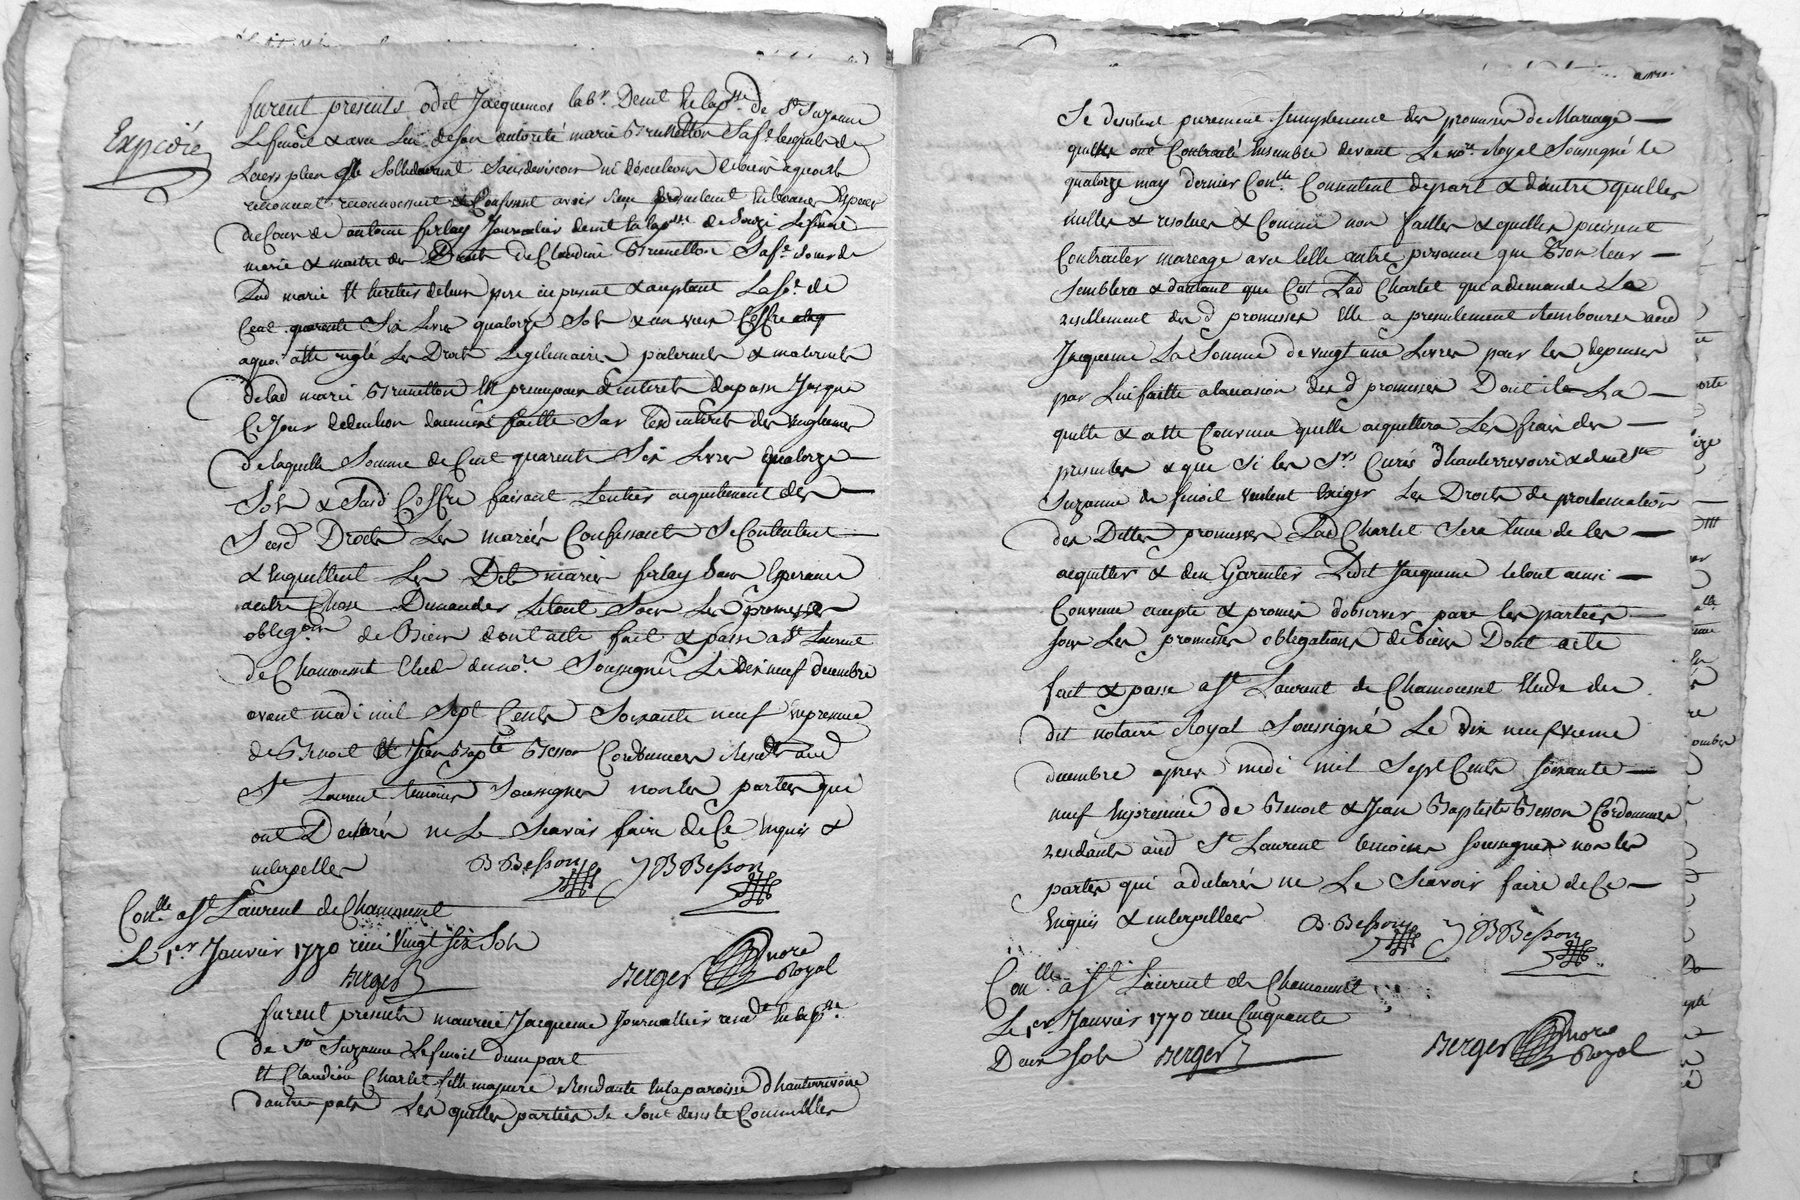 Expedié
furent presents odet Jacquemos lab.r Demt en la p.sse de S.te Suzanne
Le fenoil & avec lui de son autorité marie Brunellon Sa f.e lesquels de
Leurs plein gré Sollidairement Sans division ni discution
reconnoissent & Confessent avoir reçu presentement en bonnes Especes
de Cour de antoine ferlay Journalier demt en la p.sse de Souzi Le
marie & maitre des Droits de Claudine Brunellon Sa f.e Soeur de
Lad marie Et heritiers de leur pere ici present & acceptant La So.e de
Cent quarente Six Livres quatorze Sols & un vieux Coffre
a quoi a été reglé Les Droits Legitimaires paternels & maternels
de lad marie Brunellon En principaux & interets du passé Jusques
Ce Jour deduction douement faitte Sur lesd interets des vingtiemes
de laquelle Somme de Cent quarente Six Livres quatorze
Sols & dud Coffre faisant L'entier acquitement des
Sesd Droits Les mariés Confessants Se Contentent
& En quittent Les Dits mariés ferlay Sans Esperance
autre Chose Demander Le tout Sous Les promesses
oblig.ons de Biens dont acte fait & passé a S.t Laurent
de Chamousset Etude du no.re Soussigné Le dix neuf decembre
avant midi mil Sept Cents Soixante neuf En presence
de Benoit & Jean Bap.te Besson Cordonniers Resid.ts aud
S.t Laurent temoins Soussignés non les parties qui
ont Declarés ne Le Scavoir faire de Ce Enquis &
interpellés B Besson J B Besson
Con.lle a S.t Laurent de Chamousset
Le 1.er Janvier 1770 reçu Vingt Six Sols
Berger Berger no.re Royal
furent presents maurice Jacqueme Journallier resid.t en la p.sse
de S.te Suzanne Le fenoil d'une part
Et Claudine Charlet fille majeure Residante En la paroisse d'hauterrivoire
d'autre part Les quelles parties Se Sont
Se desistent purement Simplement des promesses de Mariage
qu'elles ont Contracté Ensemble devant Le no.re Royal Soussigné le
quatorze may dernier Con.lle Consentent de part & d'autre qu'elles
nulles & resolues & Comme non faittes & qu'elles puissent
Contracter mariage avec telle autre personne que Bon leur
Semblera & d'autant que C'est Lad Charlet qui a demandé La
resillement des d promesses Elle a presentement Remboursé aud
Jacqueme La Somme de vingt une Livres pour les depenses
par Lui faitte a l'occasion des d promesses Dont il La
quitte & a été Convenu qu'elle acquittera Les frais des
presentes & que Si les S.rs Curés d'hauterrivoire & de S.te
Suzanne du fenoil veulent Exiger Les Droits de proclamation
des Dittes promesses Lad Charlet Sera tenue de les
acquitter & d'en Garentir Ledit Jacqueme le tout ainsi
Convenu accepté & promis d'observer par les parties
Sous Les promesses obligations de biens Dont acte
fait & passé a S.t Laurent de Chamousset Etude du
dit notaire Royal Soussigné Le dix neufvieme
decembre apres midi mil Sept Cents Soixante
neuf En presence de Benoit & Jean Baptiste Besson Cordonniers
residants aud S.t Laurent temoins Soussignés non les
parties qui a declarés ne Le Scavoir faire de Ce
Enquis & interpellées B. Besson J B Besson
Con.lle a S.t Laurent de Chamousset
Le 1.er Janvier 1770 reçu Cinquante
Deux Sols Berger Berger no.re Royal